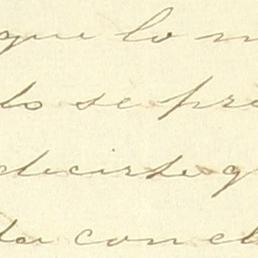 que lo m
do se pre
decirte q
da con el